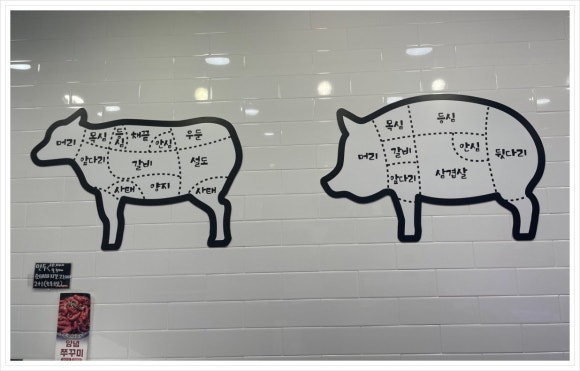 머리
목심
등심
채끝
안심
우둔
앞다리
갈비
설도
사태
양지
사태
머리
목심
등심
갈비
안심
뒷다리
앞다리
삼겹살
양념
쭈꾸미